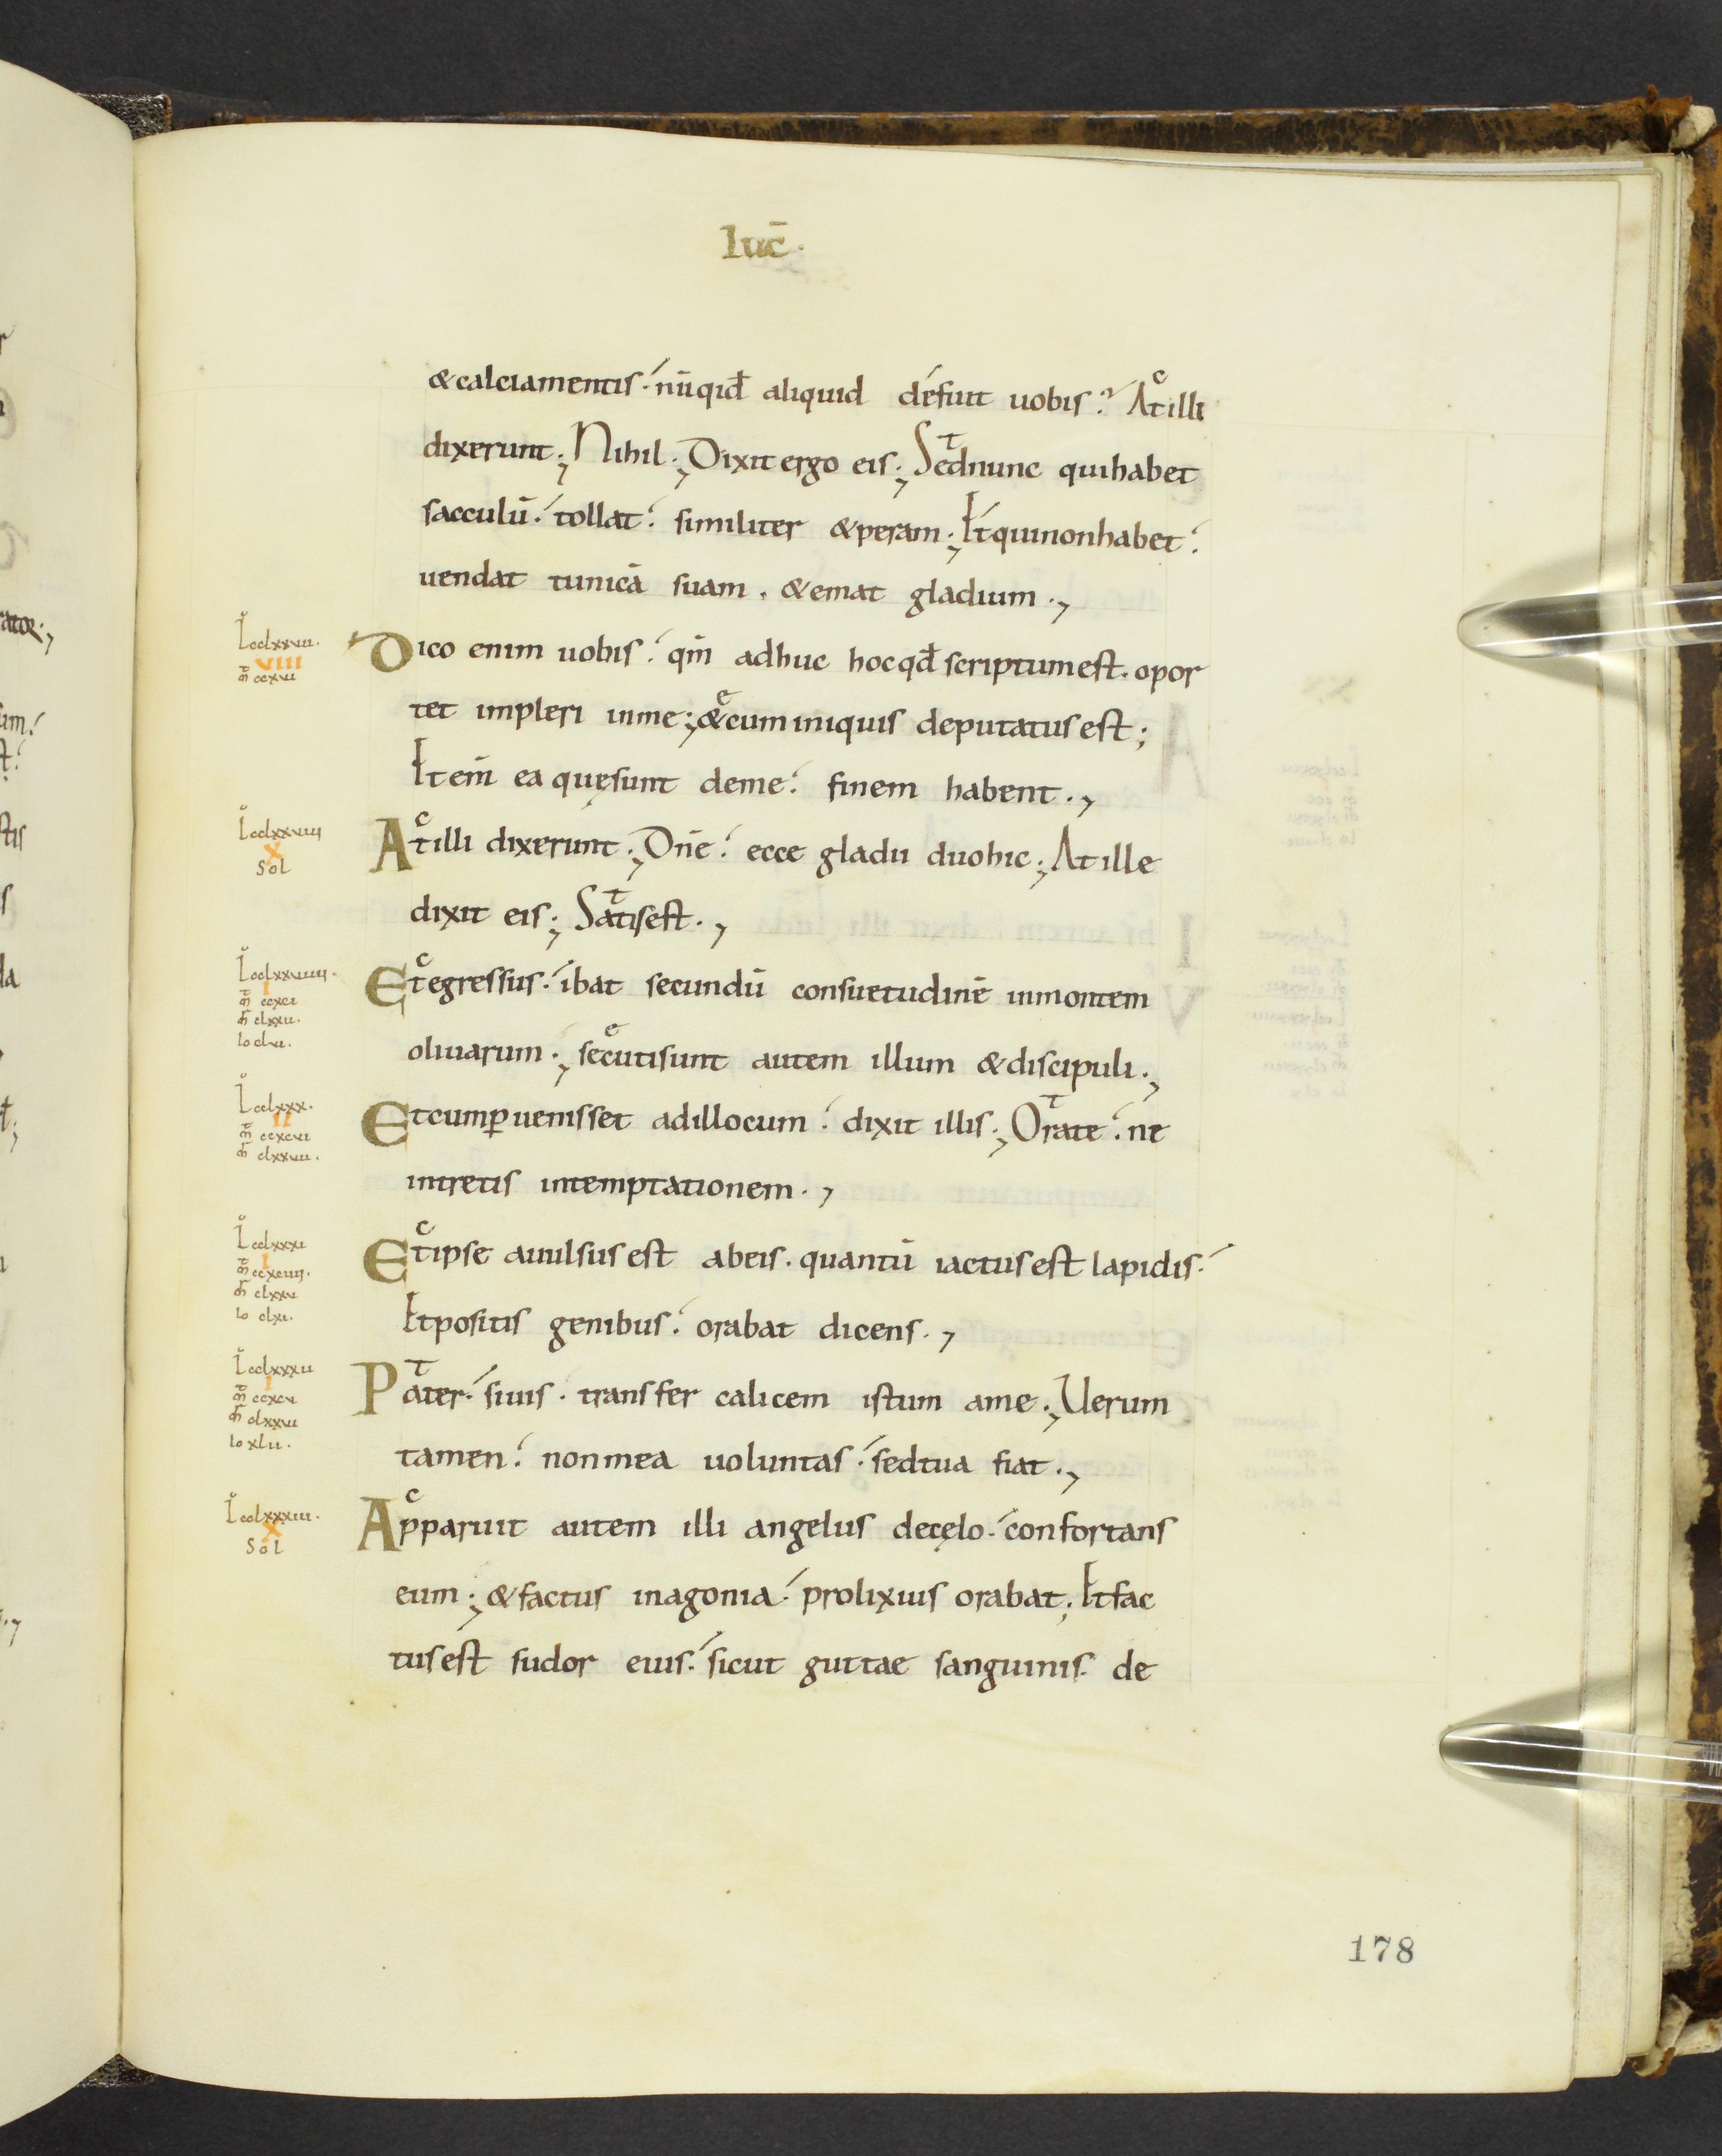 luc̄.
&calciamentis. nūqid̄ aliquid défuit uobis? Atilli
dixerunt; Nihil; Dixitergo eis; Sednunc quihabet
sacculū. tollat. similiter &peram; Etquinonhabet.
uendat tunicā suam. &emat gladium.,
Dico enim uobis. qm̄ adhuc hocqd̄ scriptumest. opor
tet impleri inme; &cuminiquis deputatusest;
Etenī ea quęsunt deme. finem habent.,
Atilli dixerunt; Dn̄e. ecce gladii duohic; Atille
dixit eis; Satisest.,
Etegressus. ibat secundū consuetudinē inmontem
oliuarum; secutisunt autem illum &discipuli.,
Etcumꝑuenisset adillocum. dixit illis; Orate. ne
intretis intemptationem.,
Etipse auulsusest abeis. quantū iactusest lapidis.
Etpositis genibus. orabat dicens.,
Pater. siuis. transfer calicem istum ame; Uerum
tamen. nonmea uoluntas. sedtua fiat.,
Apparuit autem illi angelus decęlo. confortans
eum; &factus inagonia. prolixius orabat; Etfac
tusest sudor eius. sicut guttae sanguinis. de
VIII
X
Sol
I
lo clvi.
cclxxx.
II
cclxxxi
I
cclxxxii
I
lo xlii.
cclxxxiii.
X
Sol
178